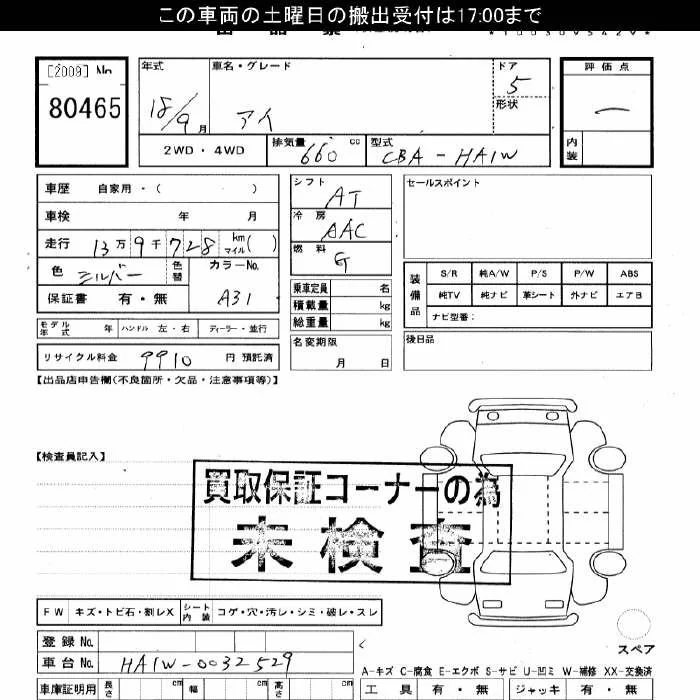 この車両の土曜日の搬出受付は17:00まで
[2009] No
80465
年式 18/9 月
車名・グレード アイ
ドア 5
形状
評価点 ー
内装
2WD・4WD
排気量 660 cc
型式 CBA-HA1W
車歴 自家用・( )
車検 年 月
走行 13万9千728 km マイル ( )
色 シルバー 色替
カラーNo. A31
保証書 有・無
シフト AT
冷房 AAC
燃料 G
乗車定員 名
積載量 kg
総重量 kg
名変期限 月 日
セールスポイント
装備品
S/R 純A/W P/S P/W ABS
純TV 純ナビ 革シート 外ナビ エアB
ナビ型番:
後日品
モデル年式 年 ハンドル 左・右 ディーラー・並行
リサイクル料金 9910 円 預託済
【出品店申告欄(不良箇所・欠品・注意事項等)】
【検査員記入】
買取保証コーナーの為
未検査
FW キズ・トビ石・割レX シート内装 コゲ・穴・汚レ・シミ・破レ・スレ
登録No.
車台No. HA1W-0032529
スペア
A-キズ C-腐食 E-エクボ S-サビ U-凹ミ W-補修 XX-交換済
車庫証明用 長さ cm 幅 cm 高さ cm
工具 有・無 ジャッキ 有・無